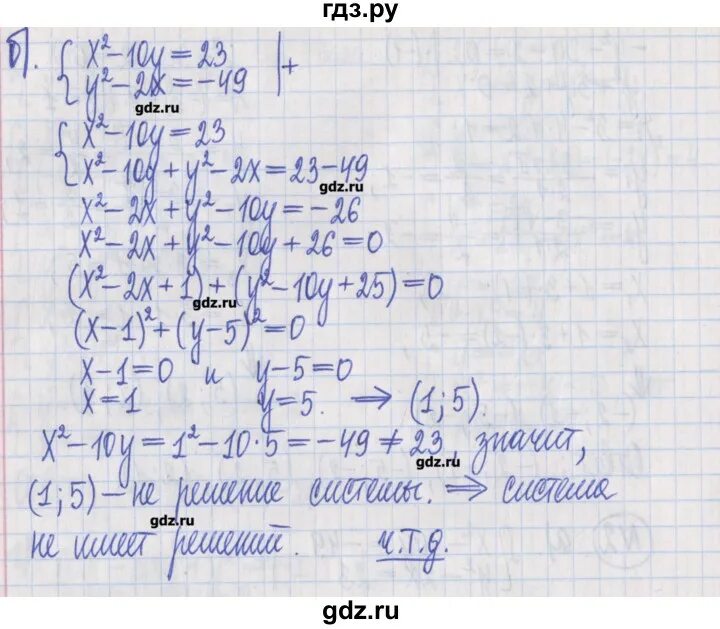 гдз.ру
б). { x² − 10y = 23 | +
{ y² − 2x = −49
gdz.ru
{ x² − 10y = 23
{ x² − 10y + y² − 2x = 23 − 49
gdz.ru
x² − 2x + y² − 10y = −26
x² − 2x + y² − 10y + 26 = 0
(x² − 2x + 1) + (y² − 10y + 25) = 0
gdz.ru
(x − 1)² + (y − 5)² = 0
x − 1 = 0 и y − 5 = 0
x = 1 y = 5. ⇒ (1; 5).
x² − 10y = 1² − 10·5 = −49 ≠ 23, значит,
gdz.ru
(1; 5) — не решение системы. ⇒ система
gdz.ru
не имеет решений. ч.т.д.
gdz.ru